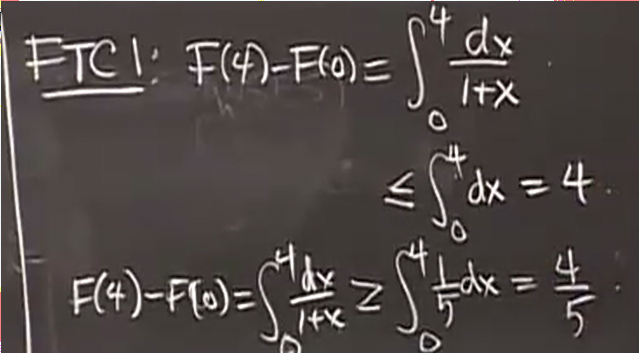 FTC1: F(4)-F(0) = ∫₀⁴ dx/(1+x)
≤ ∫₀⁴ dx = 4.
F(4)-F(0) = ∫₀⁴ dx/(1+x) ≥ ∫₀⁴ 1/5 dx = 4/5.